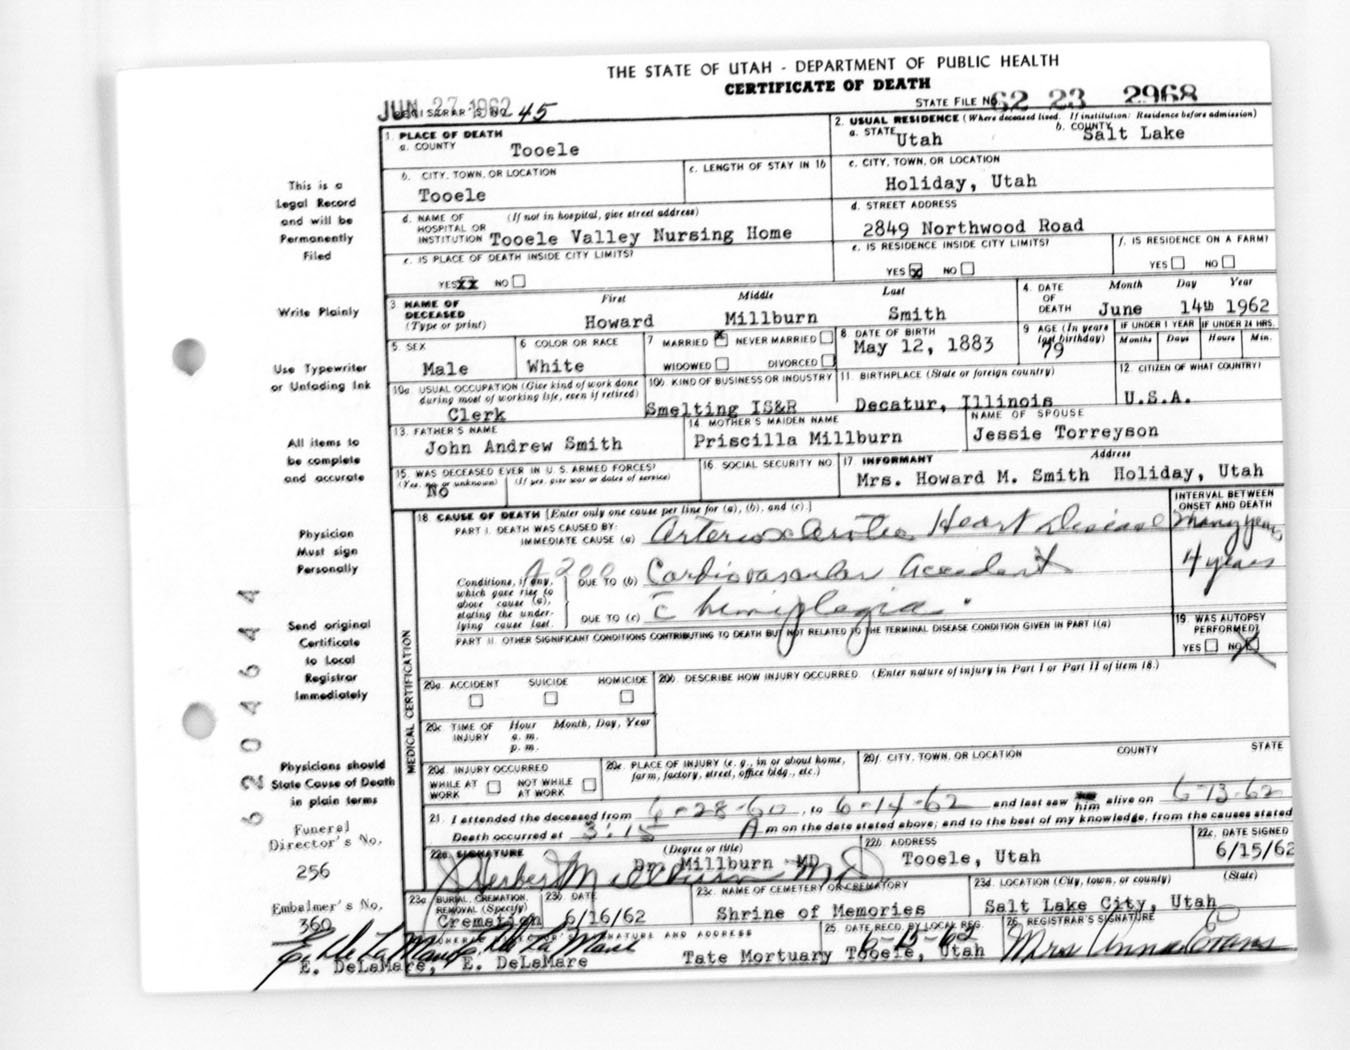 THE STATE OF UTAH - DEPARTMENT OF PUBLIC HEALTH
CERTIFICATE OF DEATH
JUN 27 1962
REGISTRAR'S NO. 45
STATE FILE NO. 62 23 2968
1. PLACE OF DEATH
a. COUNTY Tooele
2. USUAL RESIDENCE (Where deceased lived. If institution: Residence before admission)
a. STATE Utah b. COUNTY Salt Lake
b. CITY, TOWN, OR LOCATION
Tooele
c. LENGTH OF STAY IN 1b
c. CITY, TOWN, OR LOCATION
Holiday, Utah
d. NAME OF HOSPITAL OR INSTITUTION (If not in hospital, give street address)
Tooele Valley Nursing Home
d. STREET ADDRESS
2849 Northwood Road
e. IS PLACE OF DEATH INSIDE CITY LIMITS?
YES XX NO
e. IS RESIDENCE INSIDE CITY LIMITS?
YES X NO
f. IS RESIDENCE ON A FARM?
YES NO
3. NAME OF DECEASED (Type or print)
First Middle Last
Howard Millburn Smith
4. DATE OF DEATH Month Day Year
June 14th 1962
5. SEX
Male
6 COLOR OR RACE
White
7 MARRIED X NEVER MARRIED
WIDOWED DIVORCED
8 DATE OF BIRTH
May 12, 1883
9 AGE (In years last birthday)
79
IF UNDER 1 YEAR IF UNDER 24 HRS.
Months Days Hours Min.
10a USUAL OCCUPATION (Give kind of work done during most of working life, even if retired)
Clerk
10b KIND OF BUSINESS OR INDUSTRY
Smelting IS&R
11. BIRTHPLACE (State or foreign country)
Decatur, Illinois
12. CITIZEN OF WHAT COUNTRY?
U.S.A.
13. FATHER'S NAME
John Andrew Smith
14 MOTHER'S MAIDEN NAME
Priscilla Millburn
NAME OF SPOUSE
Jessie Torreyson
15. WAS DECEASED EVER IN U. S. ARMED FORCES?
(Yes, no, or unknown) (If yes, give war or dates of service)
No
16. SOCIAL SECURITY NO.
17 INFORMANT Address
Mrs. Howard M. Smith Holiday, Utah
MEDICAL CERTIFICATION
18. CAUSE OF DEATH [Enter only one cause per line for (a), (b), and (c).]
INTERVAL BETWEEN ONSET AND DEATH
PART I. DEATH WAS CAUSED BY:
IMMEDIATE CAUSE (a) Arteriosclerotic Heart Disease Many years
Conditions, if any, which gave rise to above cause (a), stating the underlying cause last.
4200
DUE TO (b) Cardiovascular Accident 4 years
DUE TO (c) c̄ hemiplegia.
PART II. OTHER SIGNIFICANT CONDITIONS CONTRIBUTING TO DEATH BUT NOT RELATED TO THE TERMINAL DISEASE CONDITION GIVEN IN PART I(a)
19. WAS AUTOPSY PERFORMED?
YES NO X
20a. ACCIDENT SUICIDE HOMICIDE
20b. DESCRIBE HOW INJURY OCCURRED (Enter nature of injury in Part I or Part II of item 18.)
20c TIME OF INJURY Hour Month, Day, Year
a. m.
p. m.
20d. INJURY OCCURRED
WHILE AT WORK NOT WHILE AT WORK
20e. PLACE OF INJURY (e. g., in or about home, farm, factory, street, office bldg., etc.)
20f. CITY, TOWN, OR LOCATION COUNTY STATE
21. I attended the deceased from 6-28-60, to 6-14-62 and last saw him alive on 6-13-62
Death occurred at 3:15 A m on the date stated above; and to the best of my knowledge, from the causes stated
22a. SIGNATURE (Degree or title)
Dr. Millburn MD
Herbert Millburn M.D.
22b. ADDRESS
Tooele, Utah
22c. DATE SIGNED
6/15/62
23a BURIAL, CREMATION, REMOVAL (Specify)
Cremation
23b DATE
6/16/62
23c. NAME OF CEMETERY OR CREMATORY
Shrine of Memories
23d. LOCATION (City, town, or county) (State)
Salt Lake City, Utah
FUNERAL DIRECTOR'S SIGNATURE AND ADDRESS
E. De La Mare, E. De La Mare
E. DeLaMare, E. DeLaMare Tate Mortuary Tooele, Utah
25. DATE RECD. BY LOCAL REG.
6-15-62
26. REGISTRAR'S SIGNATURE
Mrs Anna Evans
This is a
Legal Record
and will be
Permanently
Filed
Write Plainly
Use Typewriter
or Unfading Ink
All items to
be complete
and accurate
Physician
Must sign
Personally
Send original
Certificate
to Local
Registrar
Immediately
Physicians should
State Cause of Death
in plain terms
Funeral
Director's No.
256
Embalmer's No.
360
6204644